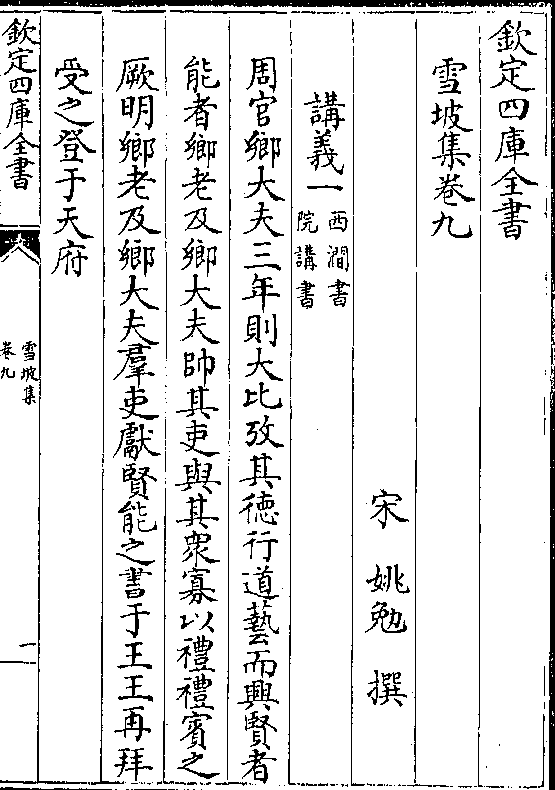 欽定四庫全書
雪坡集卷九
宋 姚勉 撰
講義一 西澗書院講書
周官鄉大夫三年則大比攷其德行道藝而興賢者
能者鄉老及鄉大夫帥其吏與其衆寡以禮禮賓之
厥明鄉老及鄉大夫羣吏獻賢能之書于王王再拜
受之登于天府
欽定四庫全書
雪坡集
卷九
一